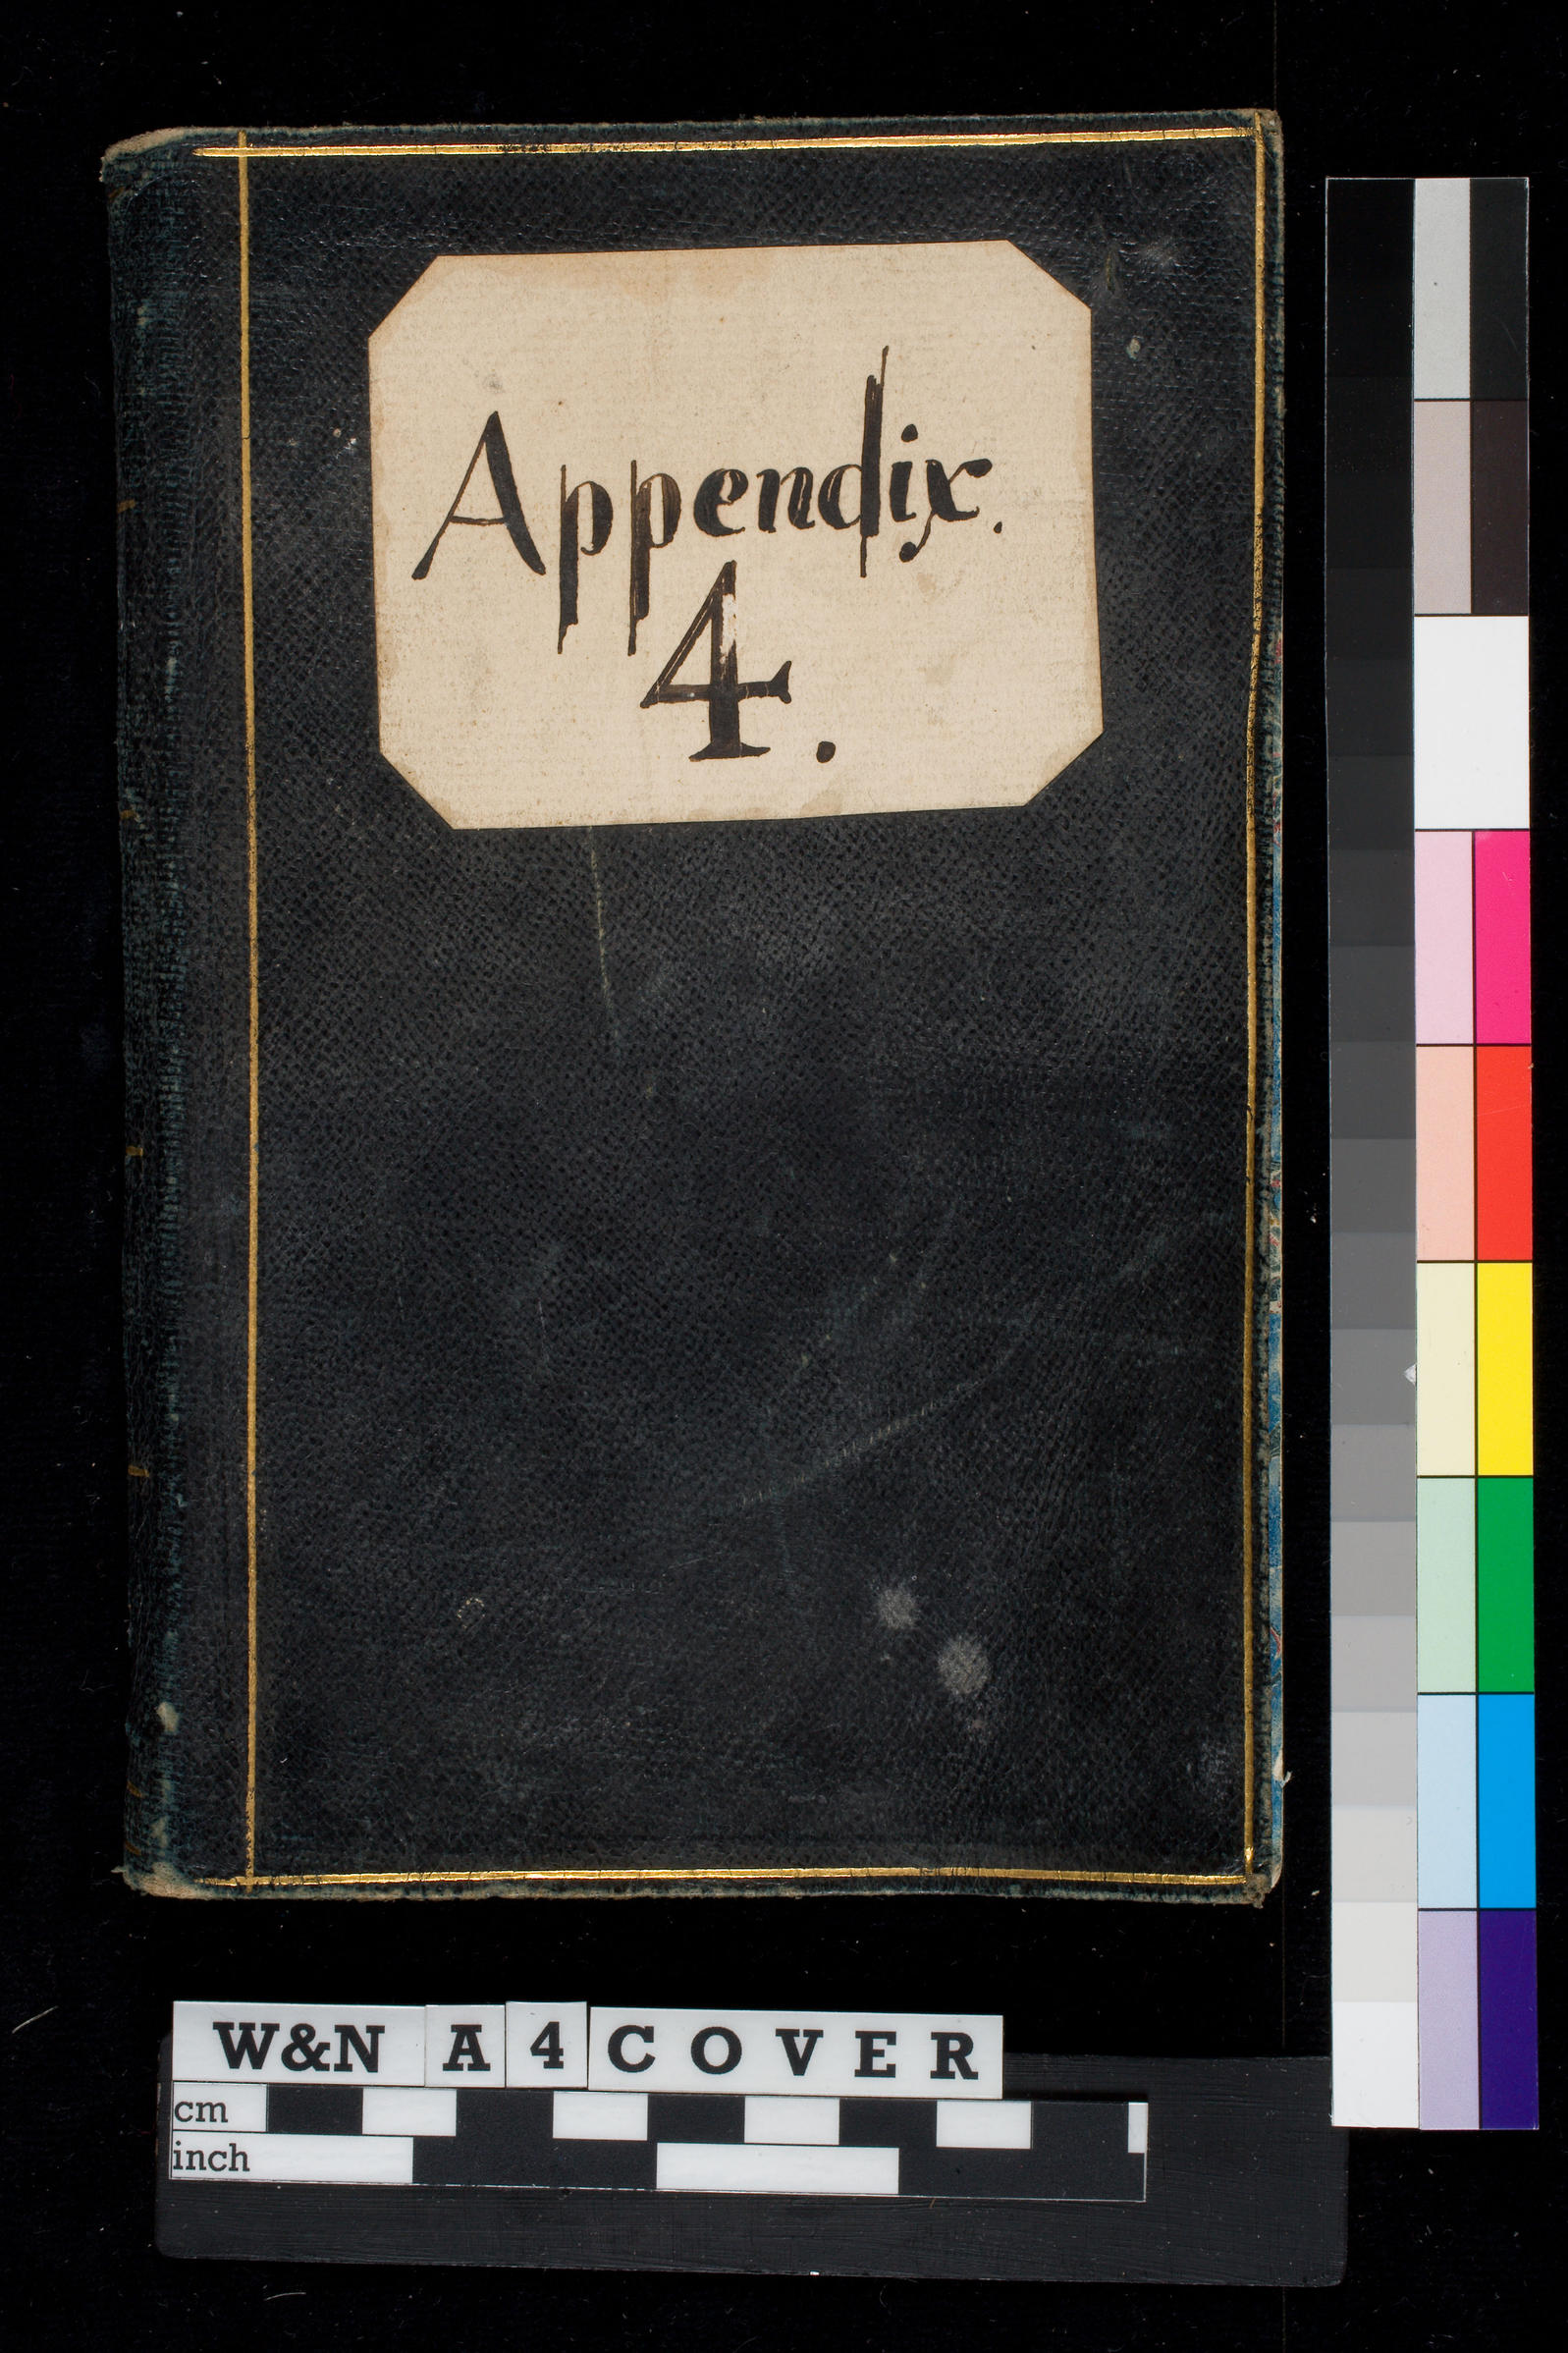 Appendix.
4.
W&N A 4 COVER
cm
inch